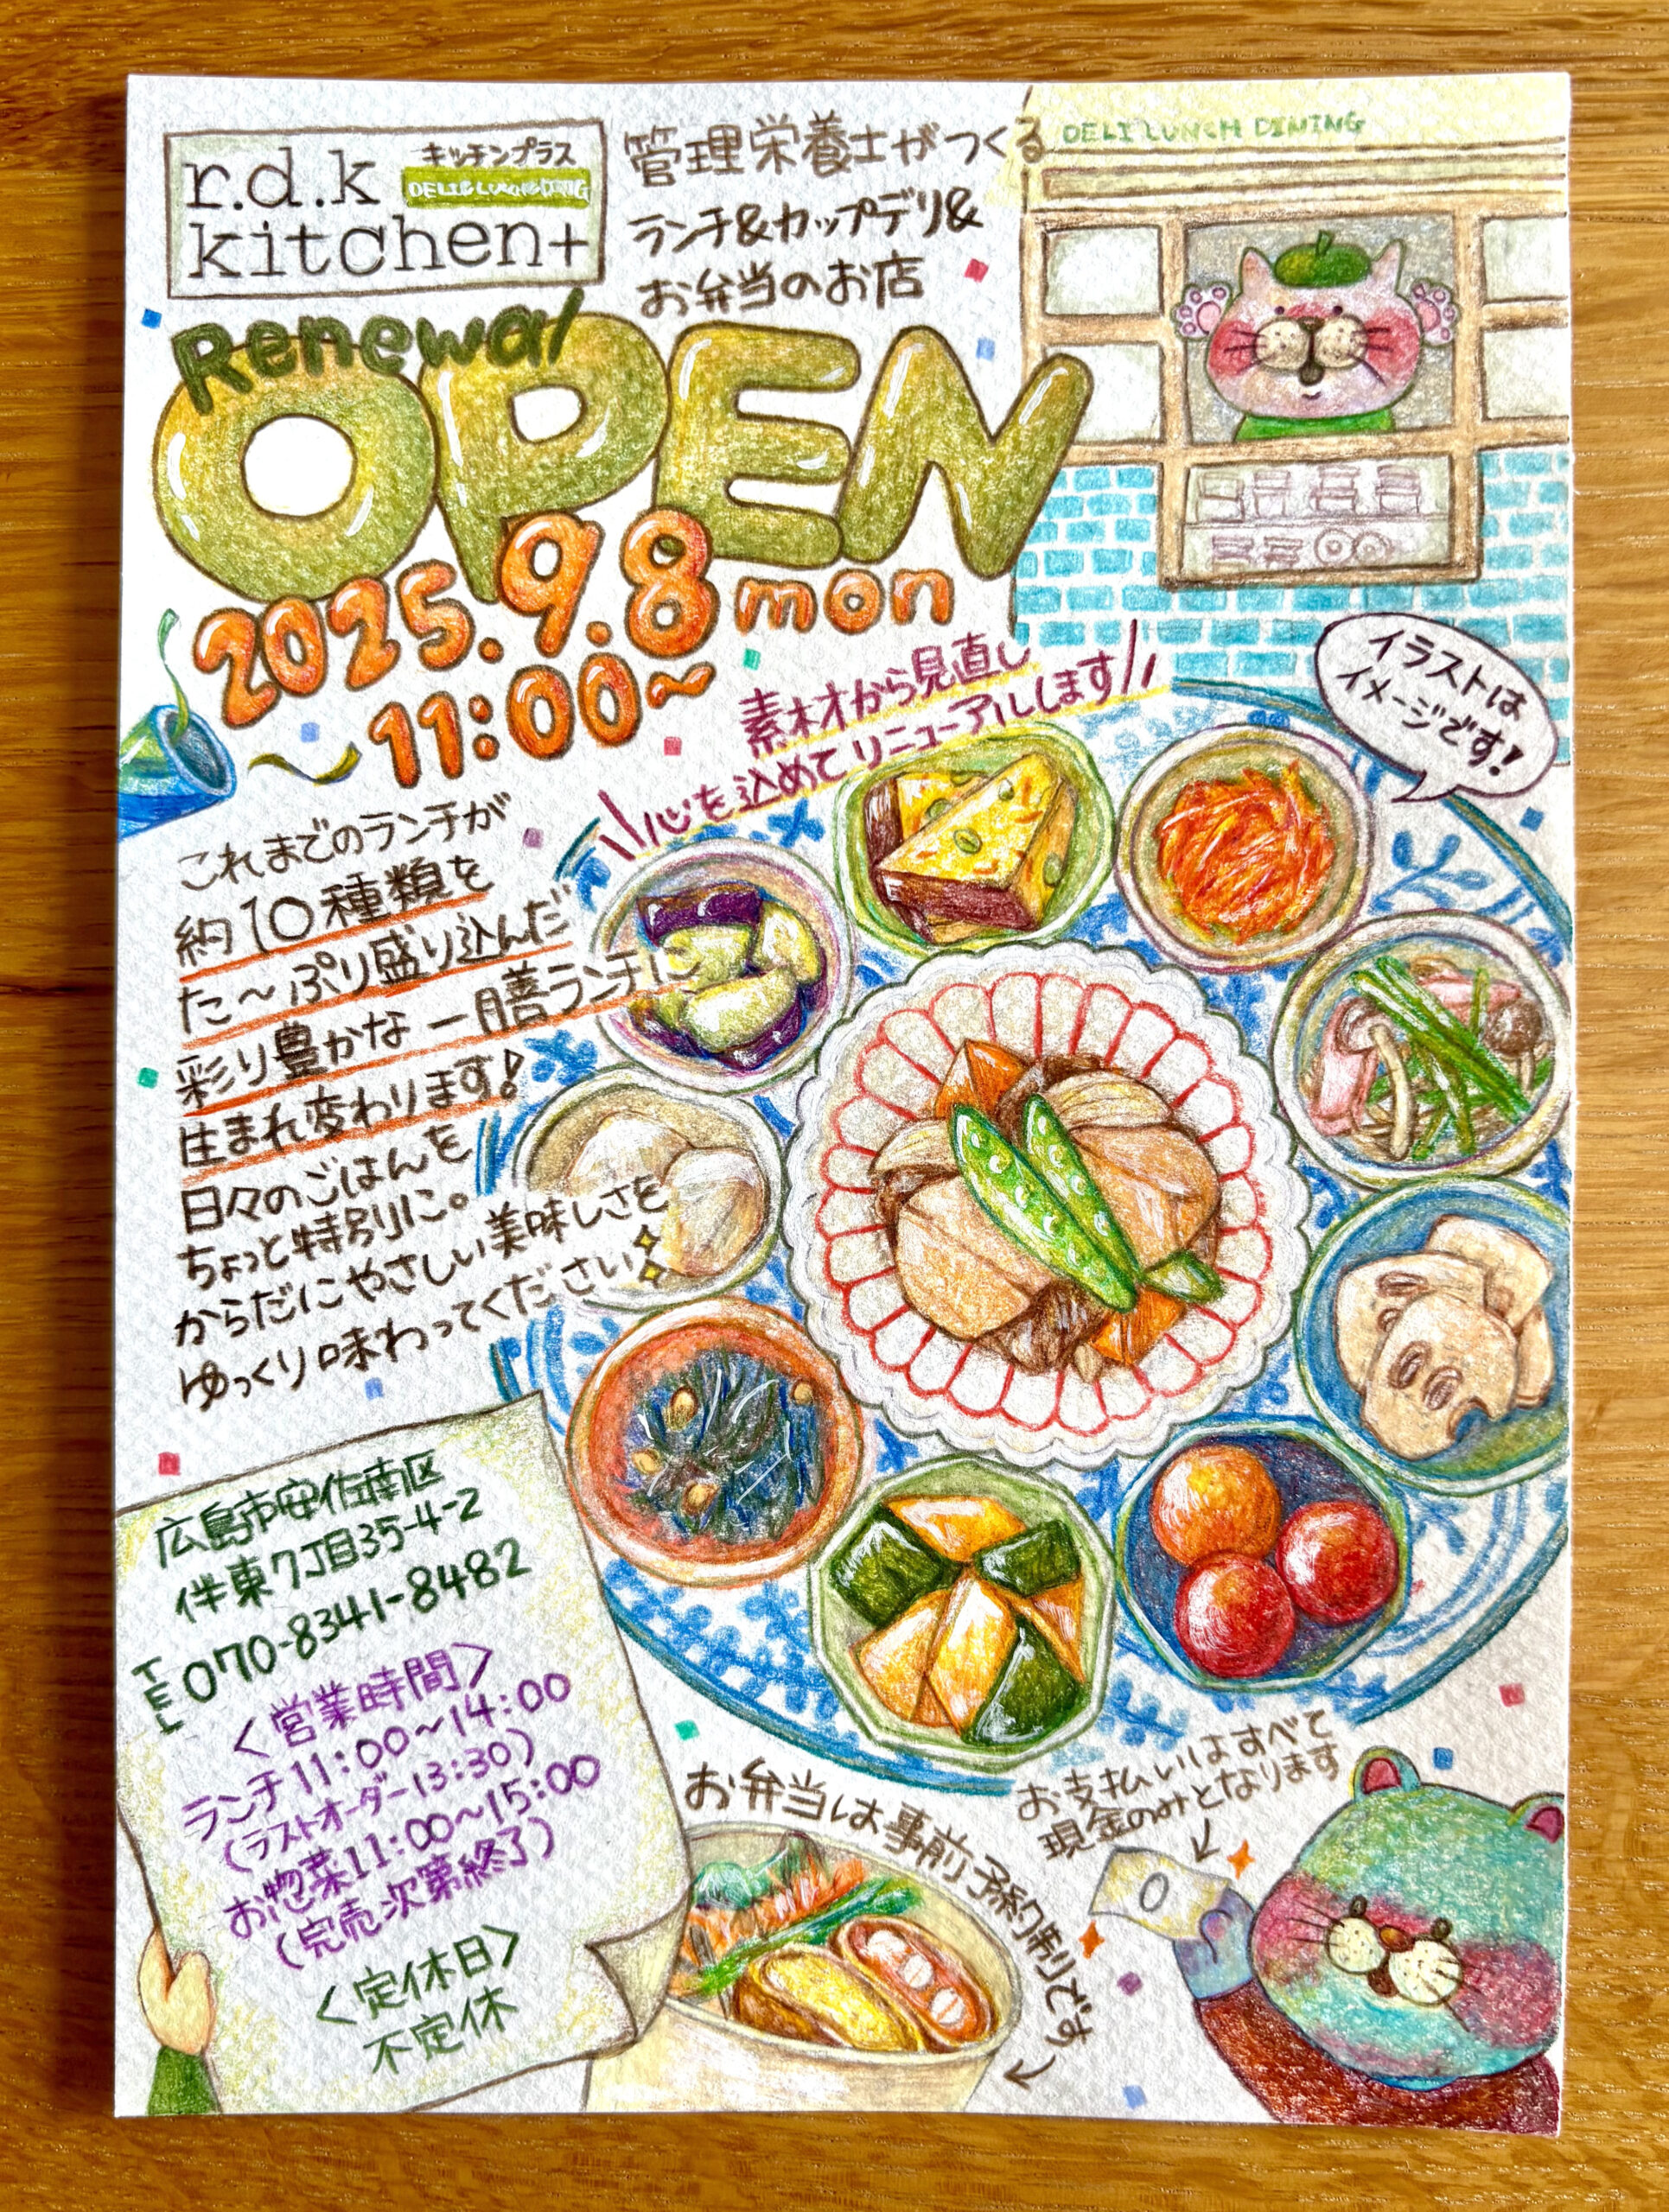 r.d.k
kitchen+
キッチンプラス
DELI&LUNCH DINING
管理栄養士がつくる
ランチ&カップデリ&
お弁当のお店
DELI LUNCH DINING
Renewal
OPEN
2025.9.8mon
〜11:00〜
素材から見直し
心を込めてリニューアルします
イラストは
イメージです!
これまでのランチが
約10種類を
た〜ぷり盛り込んだ
彩り豊かな一膳ランチに
生まれ変わります!
日々のごはんを
ちょっと特別に。
からだにやさしい美味しさを
ゆっくり味わってください
広島市安佐南区
伴東7丁目35-4-2
TEL 070-8341-8482
<営業時間>
ランチ11:00〜14:00
(ラストオーダー13:30)
お惣菜11:00〜15:00
(完売次第終了)
<定休日>
不定休
お弁当は事前予約制です
お支払いはすべて
現金のみとなります
0